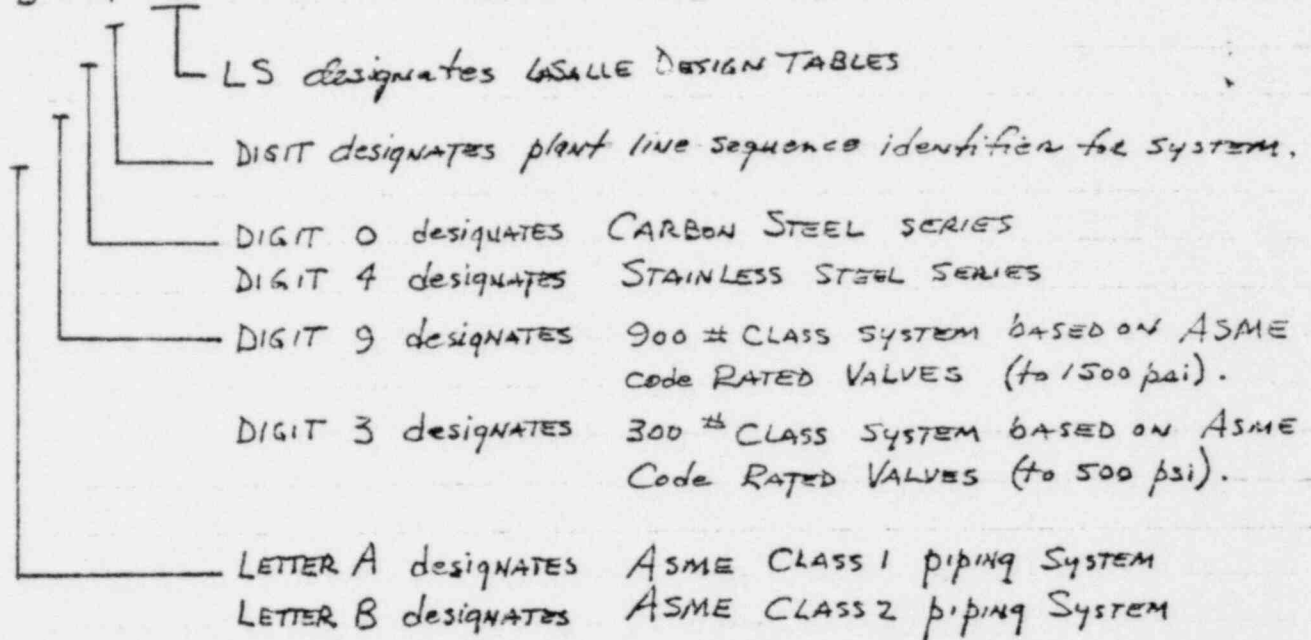 LS designates LASALLE DESIGN TABLES
DIGIT designATES plant line sequence identifier for SYSTEM.
DIGIT 0 designATES CARBON STEEL SERIES
DIGIT 4 designATES STAINLESS STEEL SERIES
DIGIT 9 designATES 900 # CLASS SYSTEM bASED ON ASME
code RATED VALUES (to 1500 psi).
DIGIT 3 designATES 300 # CLASS SYSTEM bASED ON ASME
Code RATED VALUES (to 500 psi).
LETTER A designATES ASME CLASS 1 piping SYSTEM
LETTER B designATES ASME CLASS 2 piping SYSTEM